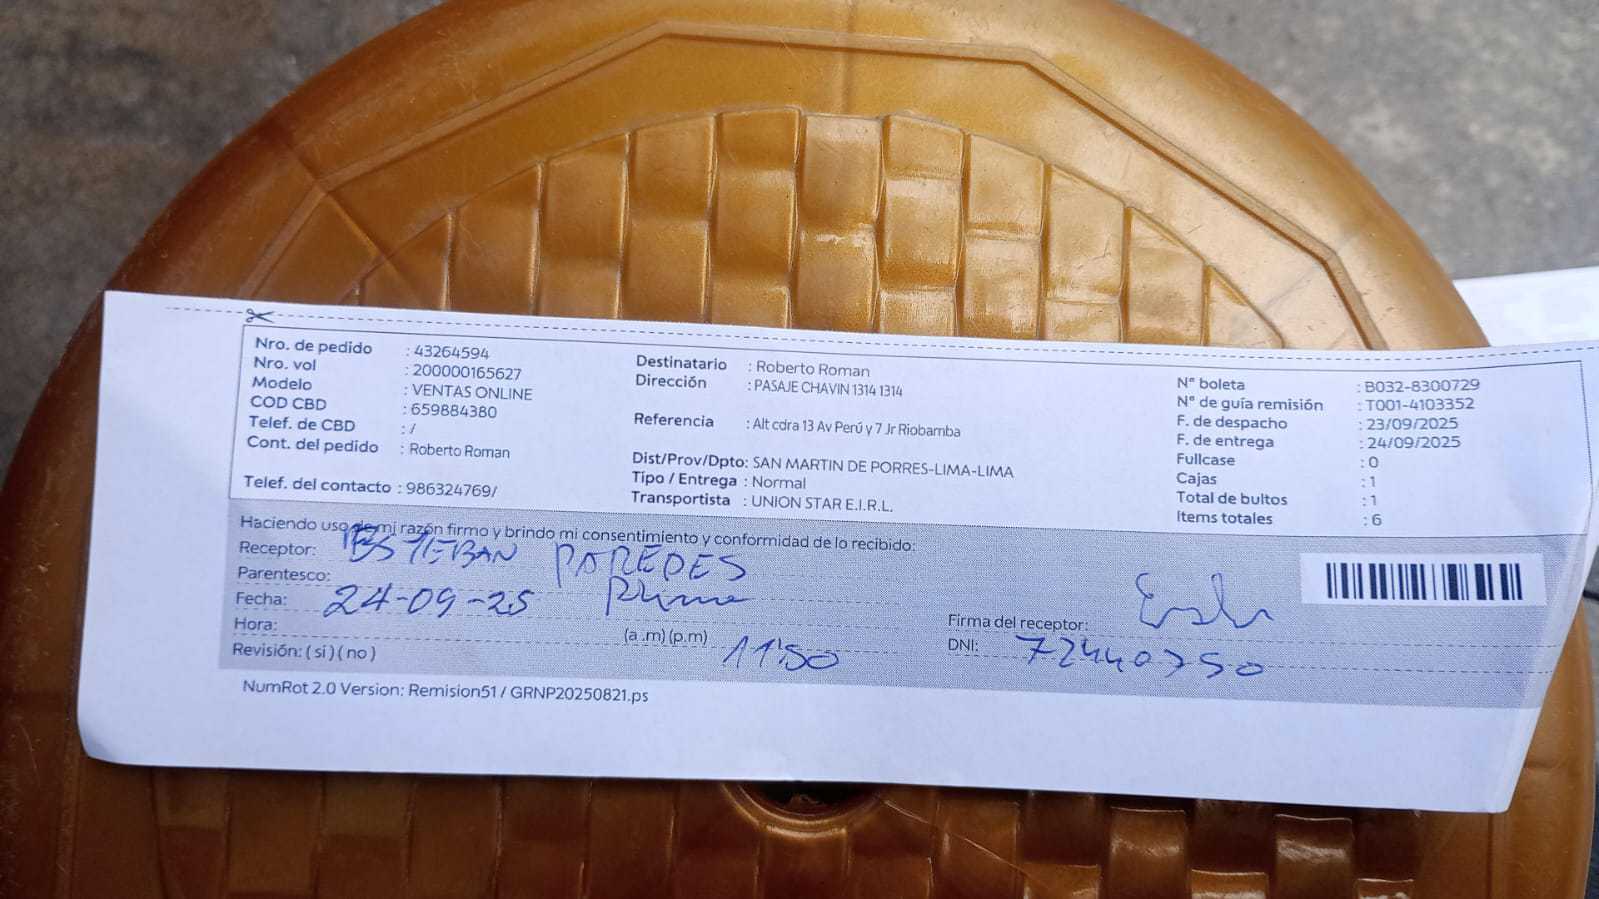 Nro. de pedido : 43264594
Nro. vol : 200000165627
Modelo : VENTAS ONLINE
COD CBD : 659884380
Telef. de CBD : /
Cont. del pedido : Roberto Roman
Telef. del contacto : 986324769/
Destinatario : Roberto Roman
Dirección : PASAJE CHAVIN 1314 1314
Referencia : Alt cdra 13 Av Perú y 7 Jr Riobamba
Dist/Prov/Dpto: SAN MARTIN DE PORRES-LIMA-LIMA
Tipo / Entrega : Normal
Transportista : UNION STAR E.I.R.L.
N° boleta : B032-8300729
N° de guía remisión : T001-4103352
F. de despacho : 23/09/2025
F. de entrega : 24/09/2025
Fullcase : 0
Cajas : 1
Total de bultos : 1
Items totales : 6
Haciendo uso de mi razón firmo y brindo mi consentimiento y conformidad de lo recibido:
Receptor: ESTEBAN PAREDES
Parentesco:
Fecha: 24-09-25
Hora: (a .m) (p.m) 11:50
Revisión: ( si ) ( no )
Firma del receptor:
DNI: 72440750
NumRot 2.0 Version: Remision51 / GRNP20250821.ps